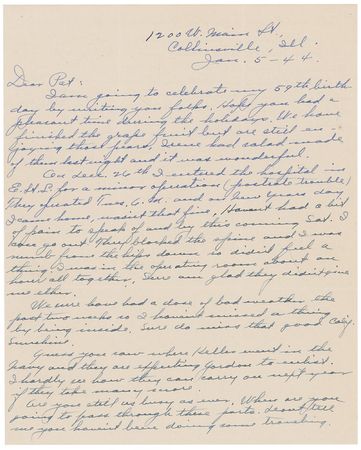 1200 W. Main St,
Collinsville, Ill.
Jan. 5-44
Dear Pat:
I am going to celebrate my 59th birth
day by writing you folks. Hope you had a
pleasant time during the holidays. We have
finished the grape fruit but are still en-
joying those pears, Irene had salad made
of them last night and it was wonderful.
On Dec. 26th I entered the hospital in
E. St. L. for a minor operation (prostrate trouble)
They operated Tues. A.M. and on New Years day
I came home, wasn't that fine, Haven't had a bit
of pain to speak of and by this coming Sat. I
can go out. They blocked the spine and I was
numb from the hips down so didn't feel a
thing. I was in the operating room about an
hour all together, Sure am glad they didn't give
me ether.
We sure have had a dose of bad weather the
past two weeks so I haven't missed a thing
by being inside. Sure do miss that good Calif.
Sunshine.
Guess you saw where Heller went in the
Navy and they are expecting Gordon to enlist.
I hardly see how they can carry on next year
if they take many more.
Are you still as busy as ever. When are you
going to pass through these parts. Don't tell
me you haven't been doing some traveling.